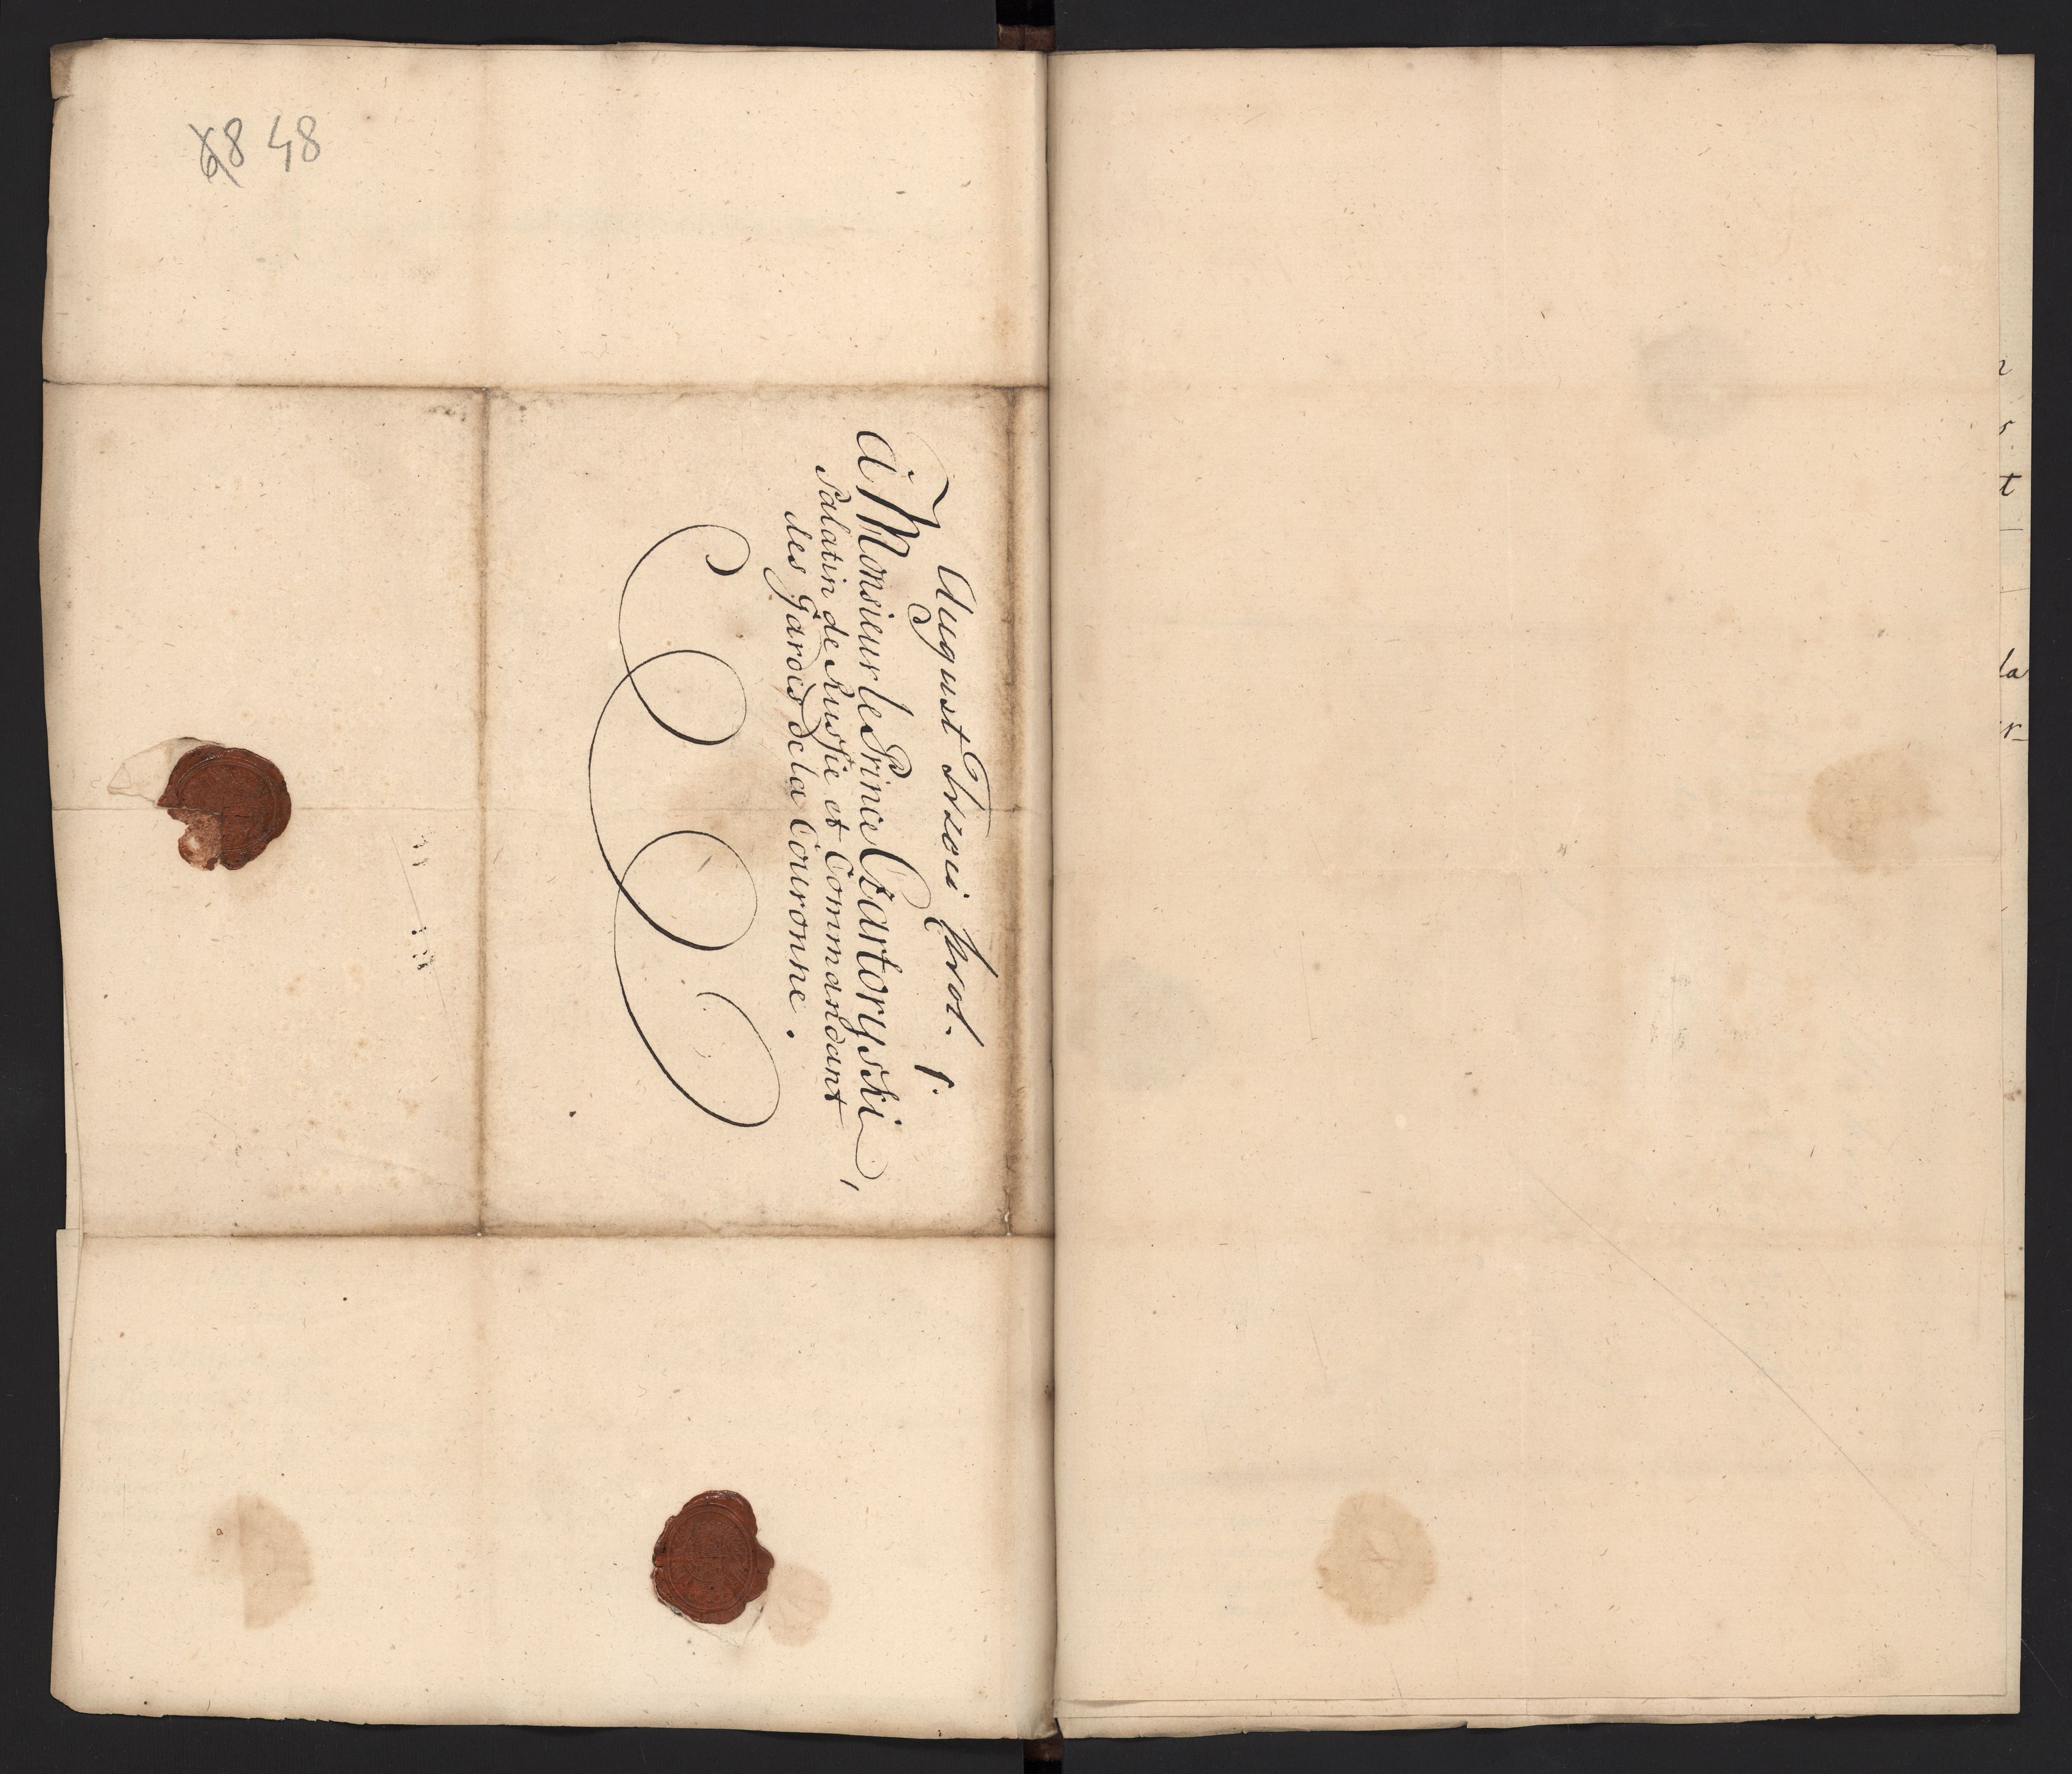 68 48
August Trzeci Krol. P.
à Monsieur le Prince Czartoryski,
Palatin de Russie et Commandant
des Gardes de la Couronne.
t
la
r-